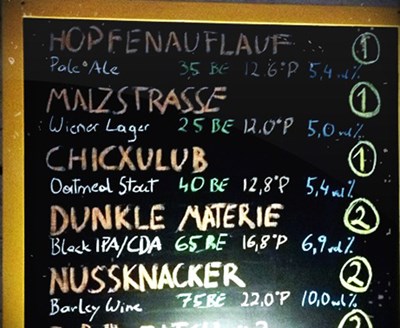 HOPFENAUFLAUF 1
Pale Ale 35 BE 12.6°P 5,4 vol%
MALZSTRASSE 1
Wiener Lager 25 BE 12.0°P 5,0 vol%
CHICXULUB 1
Oatmeal Stout 40 BE 12,8°P 5,4 vol%
DUNKLE MATERIE 2
Black IPA/CDA 65 BE 16,8°P 6,9 vol%
NUSSKNACKER 2
Barley Wine 75 BE 22,0°P 10,0 vol%